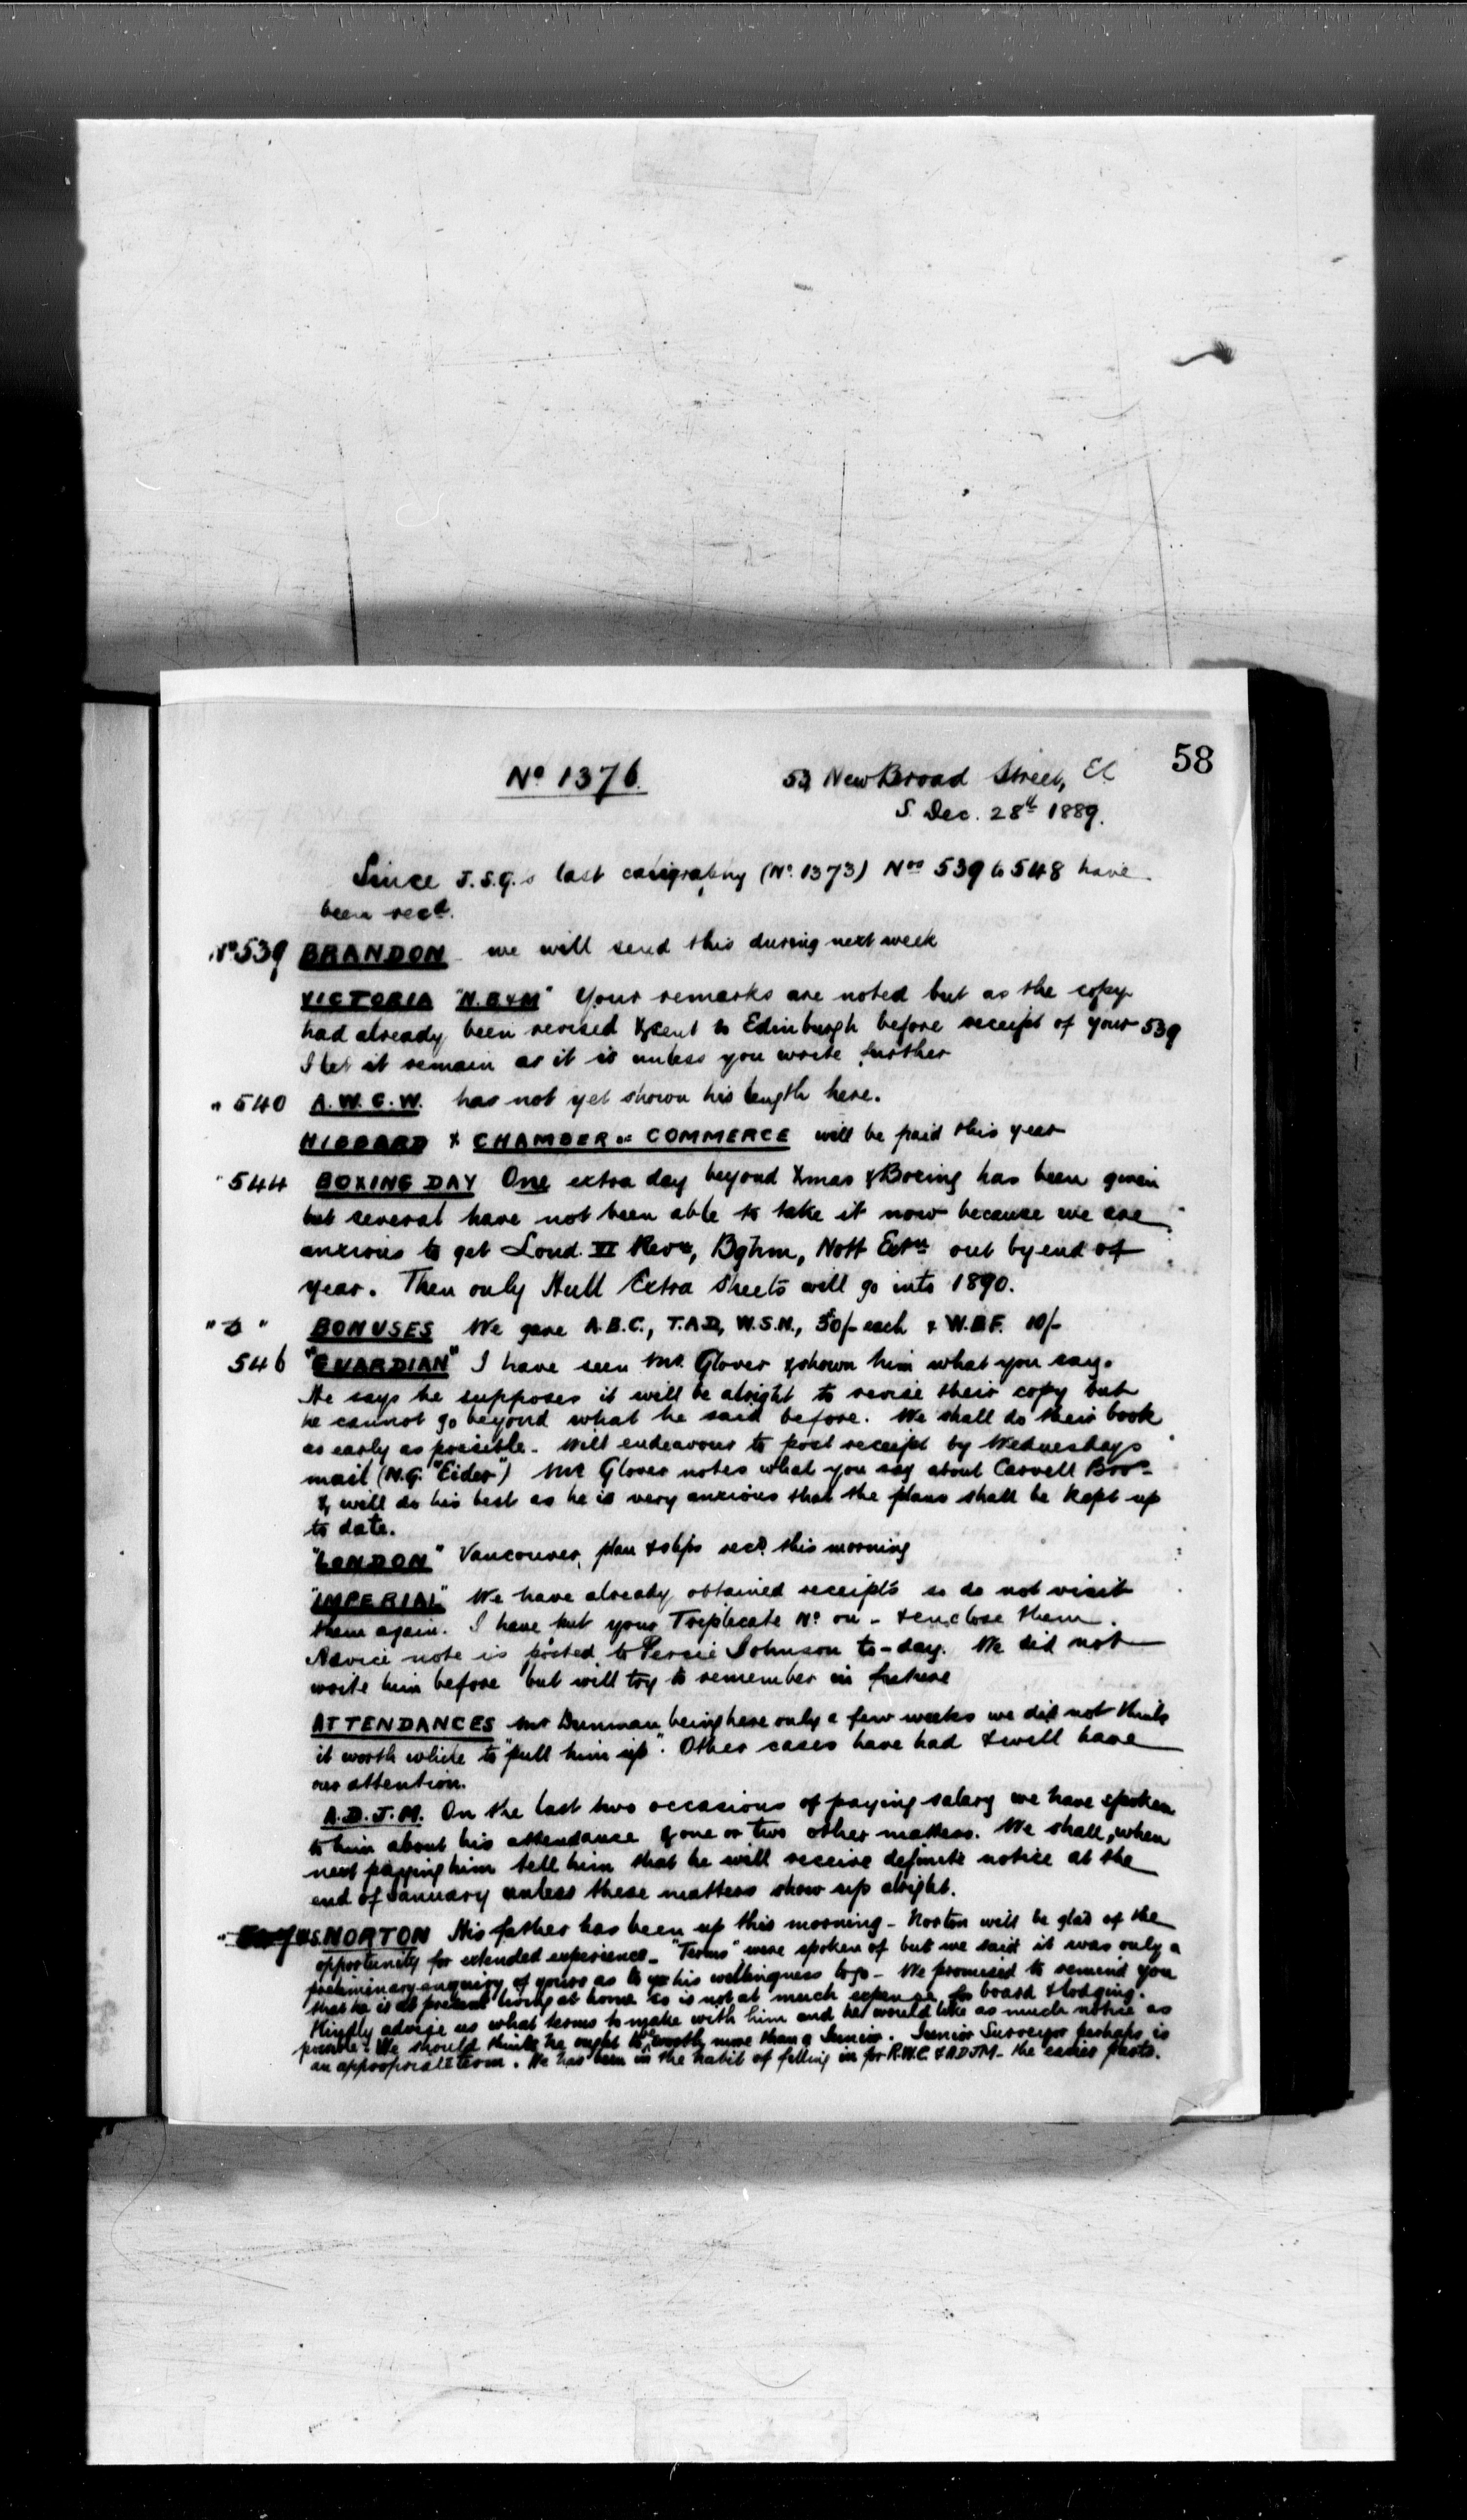 58
No 1376.
53, New Broad Street, E.C.
S. Dec. 28th 1889.
Since J.S.G.s last caligraphy (No. 1373) Nos 539 to 548 have
been recd.
No 539 BRANDON we will send this during next week
VICTORIA "N.B&M" Your remarks are noted but as the copy
had already been revised & sent to Edinburgh before receipt of your 539
I let it remain as it is unless you write further
" 540 A.W.C.W. has not yet shown his length here.
HIBBARD & CHAMBER of COMMERCE will be paid this year
" 544 BOXING DAY One extra day beyond Xmas & Boxing has been given
but several have not been able to take it now because we are
anxious to get Lond. VI Revn, Bghm, Nott Extn out by end of
year. Then only Hull Extra Sheets will go into 1890.
" " BONUSES We gave A.B.C., T.A.D, W.S.N., 50/- each & W.B.F. 10/-
546 "GUARDIAN" I have seen Mr. Glover & shown him what you say.
He says he supposes it will be alright to revise their copy but
he cannot go beyond what he said before. We shall do their book
as early as possible. Will endeavour to post receipt by Wednesdays
mail (N.G. "Eider") Mr Glover notes what you say about Carvell Bros
& will do his best as he is very anxious that the plans shall be kept up
to date.
"LONDON" Vancouver, plan & slips recd. this morning
"IMPERIAL" We have already obtained receipts so do not visit
them again. I have put your Triplicate No. on - & enclose them.
Advice note is posted to Percie Johnson to-day. We did not
write him before but will try to remember in future
ATTENDANCES Mr Dunman being here only a few weeks we did not think
it worth while to "pull him up". Other cases have had & will have
our attention.
A.D.J.M. On the last two occasions of paying salary we have spoken
to him about his attendance & one or two other matters. We shall, when
next paying him tell him that he will receive definite notice at the
end of January unless these matters show up alright.
NORTON His father has been up this morning - Norton will be glad of the
opportunity for extended experience - "Terms" were spoken of but we said it was only a
preliminary enquiry of yours as to his willingness to go - We promised to remind you
that he is at present living at home so is not at much expense for board & lodging.
Kindly advise us what terms to make with him and he would like as much notice as
possible. We should think he ought to be worth more than a Junior. Junior Surveyor perhaps is
an appropriate term. He has been in the habit of filling in for R.W.C. & ADJM - the easier parts.